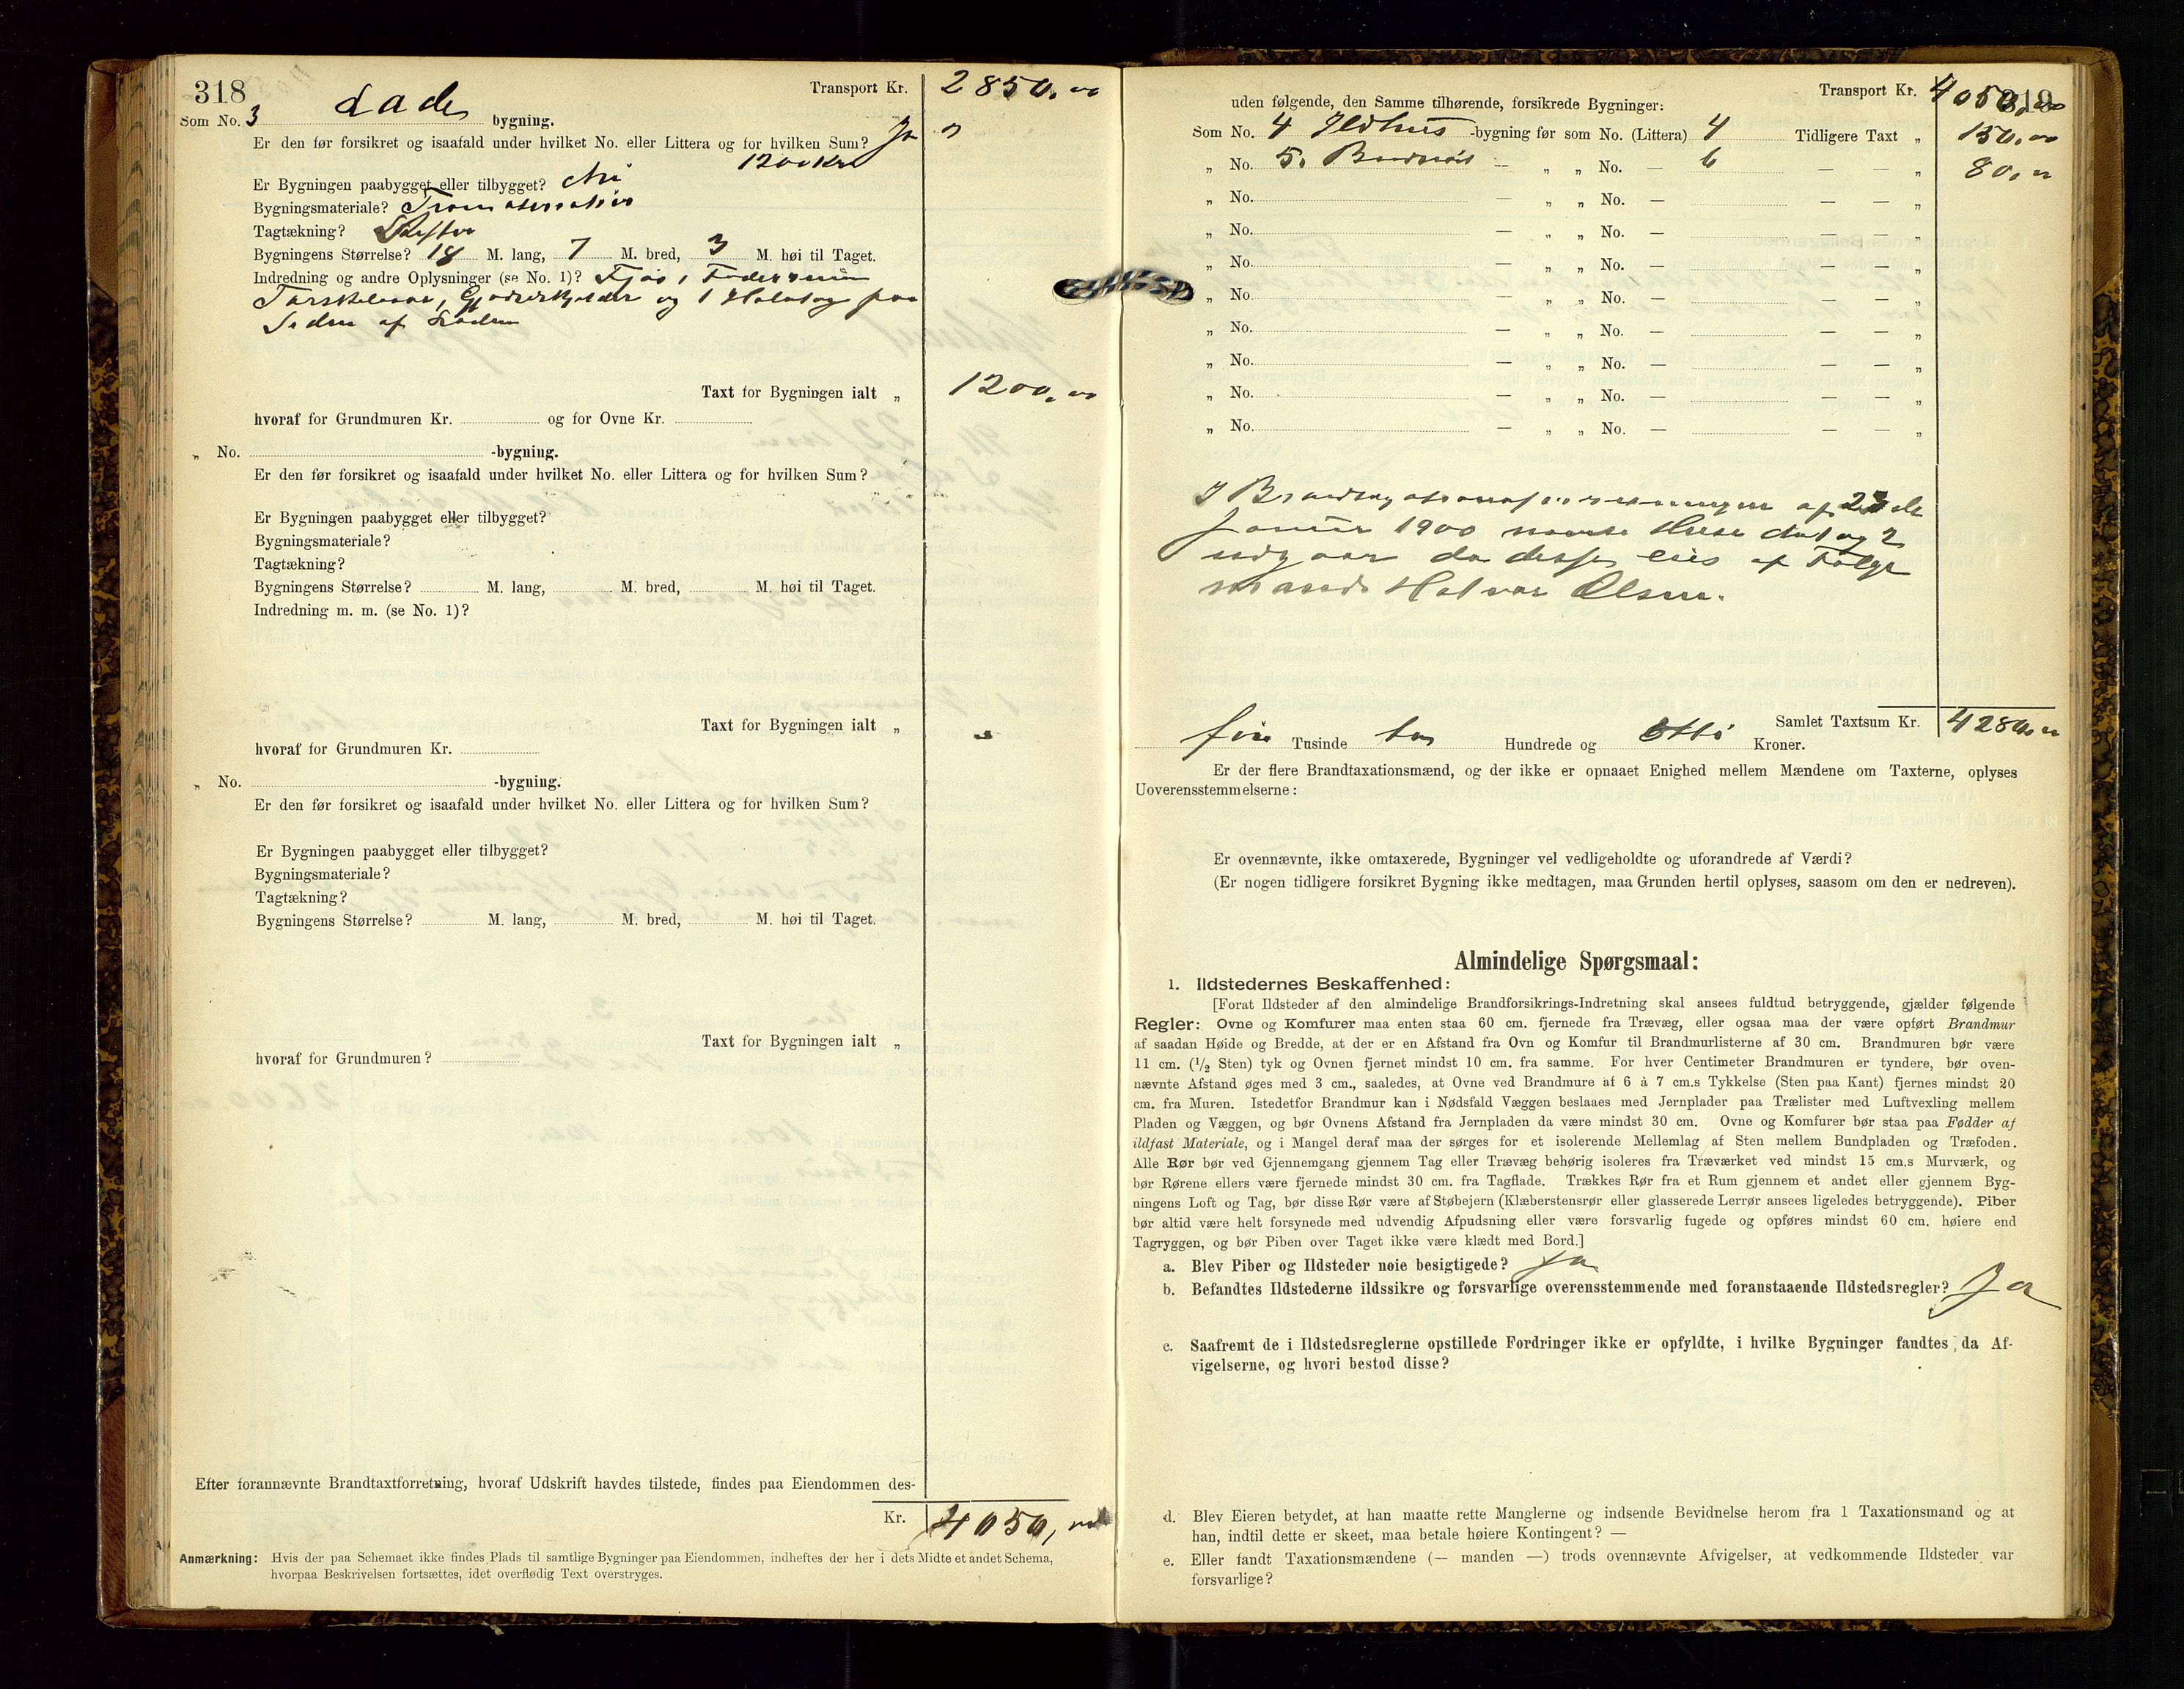 318
Transport Kr. 2850,00
Som No. 3 Lade bygning.
Er den før forsikret og isaafald under hvilket No. eller Littera og for hvilken Sum? Ja
1200 Kr
Er Bygningen paabygget eller tilbygget? Nei
Bygningsmateriale?
Tagtækning? Skifer
Bygningens Størrelse? 18 M. lang, 7 M. bred, 3 M. høi til Taget.
Indredning og andre Oplysninger (se No. 1)? Fjøs, Foderrum
Tærskelaave, Gjødselkjelder og 1 Halvtag paa
Siden af Laden
Taxt for Bygningen ialt „ 1200,00
hvoraf for Grundmuren Kr. og for Ovne Kr.
„ No. -bygning.
Er den før forsikret og isaafald under hvilket No. eller Littera og for hvilken Sum?
Er Bygningen paabygget eller tilbygget?
Bygningsmateriale?
Tagtækning?
Bygningens Størrelse? M. lang, M. bred, M. høi til Taget.
Indredning m. m. (se No. 1)?
Taxt for Bygningen ialt „
hvoraf for Grundmuren Kr.
„ No. -bygning.
Er den før forsikret og isaafald under hvilket No. eller Littera og for hvilken Sum?
Er Bygningen paabygget eller tilbygget?
Bygningsmateriale?
Tagtækning?
Bygningens Størrelse? M. lang, M. bred, M. høi til Taget.
Taxt for Bygningen ialt „
hvoraf for Grundmuren?
Efter forannævnte Brandtaxtforretning, hvoraf Udskrift havdes tilstede, findes paa Eiendommen des-
Kr. 4050,
Anmærkning: Hvis der paa Schemaet ikke findes Plads til samtlige Bygninger paa Eiendommen, indheftes der her i dets Midte et andet Schema,
hvorpaa Beskrivelsen fortsættes, idet overflødig Text overstryges.
319
Transport Kr. 4050,00
uden følgende, den Samme tilhørende, forsikrede Bygninger:
Som No. 4 Ildhus -bygning før som No. (Littera) 4 Tidligere Taxt „ 150,00
„ No. 5. — „ „ No. — 6 — — „ 80,00
„ No. — „ „ No. — — — „
„ No. — „ „ No. — — — „
„ No. — „ „ No. — — — „
„ No. — „ „ No. — — — „
„ No. — „ „ No. — — — „
„ No. — „ „ No. — — — „
„ No. — „ „ No. — — — „
„ No. — „ „ No. — — — „
I af 23de
Januar 1900 nævnte Huse No 1 og 2
udgaar da disse eies af Følge
Halvor Olsen.
Samlet Taxtsum Kr. 4280,00
fire Tusinde to Hundrede og Otti Kroner.
Er der flere Brandtaxationsmænd, og der ikke er opnaaet Enighed mellem Mændene om Taxterne, oplyses
Uoverensstemmelserne:
Er ovennævnte, ikke omtaxerede, Bygninger vel vedligeholdte og uforandrede af Værdi?
(Er nogen tidligere forsikret Bygning ikke medtagen, maa Grunden hertil oplyses, saasom om den er nedreven).
Almindelige Spørgsmaal:
1. Ildstedernes Beskaffenhed:
[Forat Ildsteder af den almindelige Brandforsikrings-Indretning skal ansees fuldtud betryggende, gjælder følgende
Regler: Ovne og Komfurer maa enten staa 60 cm. fjernede fra Trævæg, eller ogsaa maa der være opført Brandmur
af saadan Høide og Bredde, at der er en Afstand fra Ovn og Komfur til Brandmurlisterne af 30 cm. Brandmuren bør være
11 cm. (1/2 Sten) tyk og Ovnen fjernet mindst 10 cm. fra samme. For hver Centimeter Brandmuren er tyndere, bør oven-
nævnte Afstand øges med 3 cm., saaledes, at Ovne ved Brandmure af 6 à 7 cm.s Tykkelse (Sten paa Kant) fjernes mindst 20
cm. fra Muren. Istedetfor Brandmur kan i Nødsfald Væggen beslaaes med Jernplader paa Trælister med Luftvexling mellem
Pladen og Væggen, og bør Ovnens Afstand fra Jernpladen da være mindst 30 cm. Ovne og Komfurer bør staa paa Fødder af
ildfast Materiale, og i Mangel deraf maa der sørges for et isolerende Mellemlag af Sten mellem Bundpladen og Træfoden.
Alle Rør bør ved Gjennemgang gjennem Tag eller Trævæg behørig isoleres fra Træværket ved mindst 15 cm.s Murværk, og
bør Rørene ellers være fjernede mindst 30 cm. fra Tagflade. Trækkes Rør fra et Rum gjennem et andet eller gjennem Byg-
ningens Loft og Tag, bør disse Rør være af Støbejern (Klæberstensrør eller glasserede Lerrør ansees ligeledes betryggende). Piber
bør altid være helt forsynede med udvendig Afpudsning eller være forsvarlig fugede og opføres mindst 60 cm. høiere end
Tagryggen, og bør Piben over Taget ikke være klædt med Bord.]
a. Blev Piber og Ildsteder nøie besigtigede? Ja
b. Befandtes Ildstederne ildssikre og forsvarlige overensstemmende med foranstaaende Ildstedsregler? Ja
c. Saafremt de i Ildstedsreglerne opstillede Fordringer ikke er opfyldte, i hvilke Bygninger fandtes da Af-
vigelserne, og hvori bestod disse?
d. Blev Eieren betydet, at han maatte rette Manglerne og indsende Bevidnelse herom fra 1 Taxationsmand og at
han, indtil dette er skeet, maa betale høiere Kontingent? —
e. Eller fandt Taxationsmændene (— manden —) trods ovennævnte Afvigelser, at vedkommende Ildsteder var
forsvarlige?